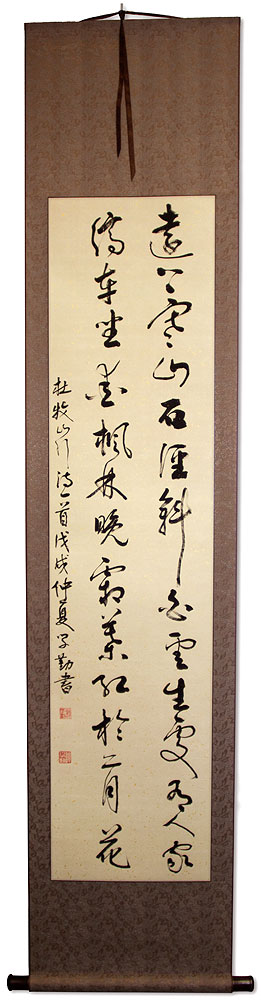 遠上寒山石徑斜白雲生處有人家
停車坐愛楓林晚霜葉紅於二月花
杜牧山行詩一首戊戌仲夏學勤書